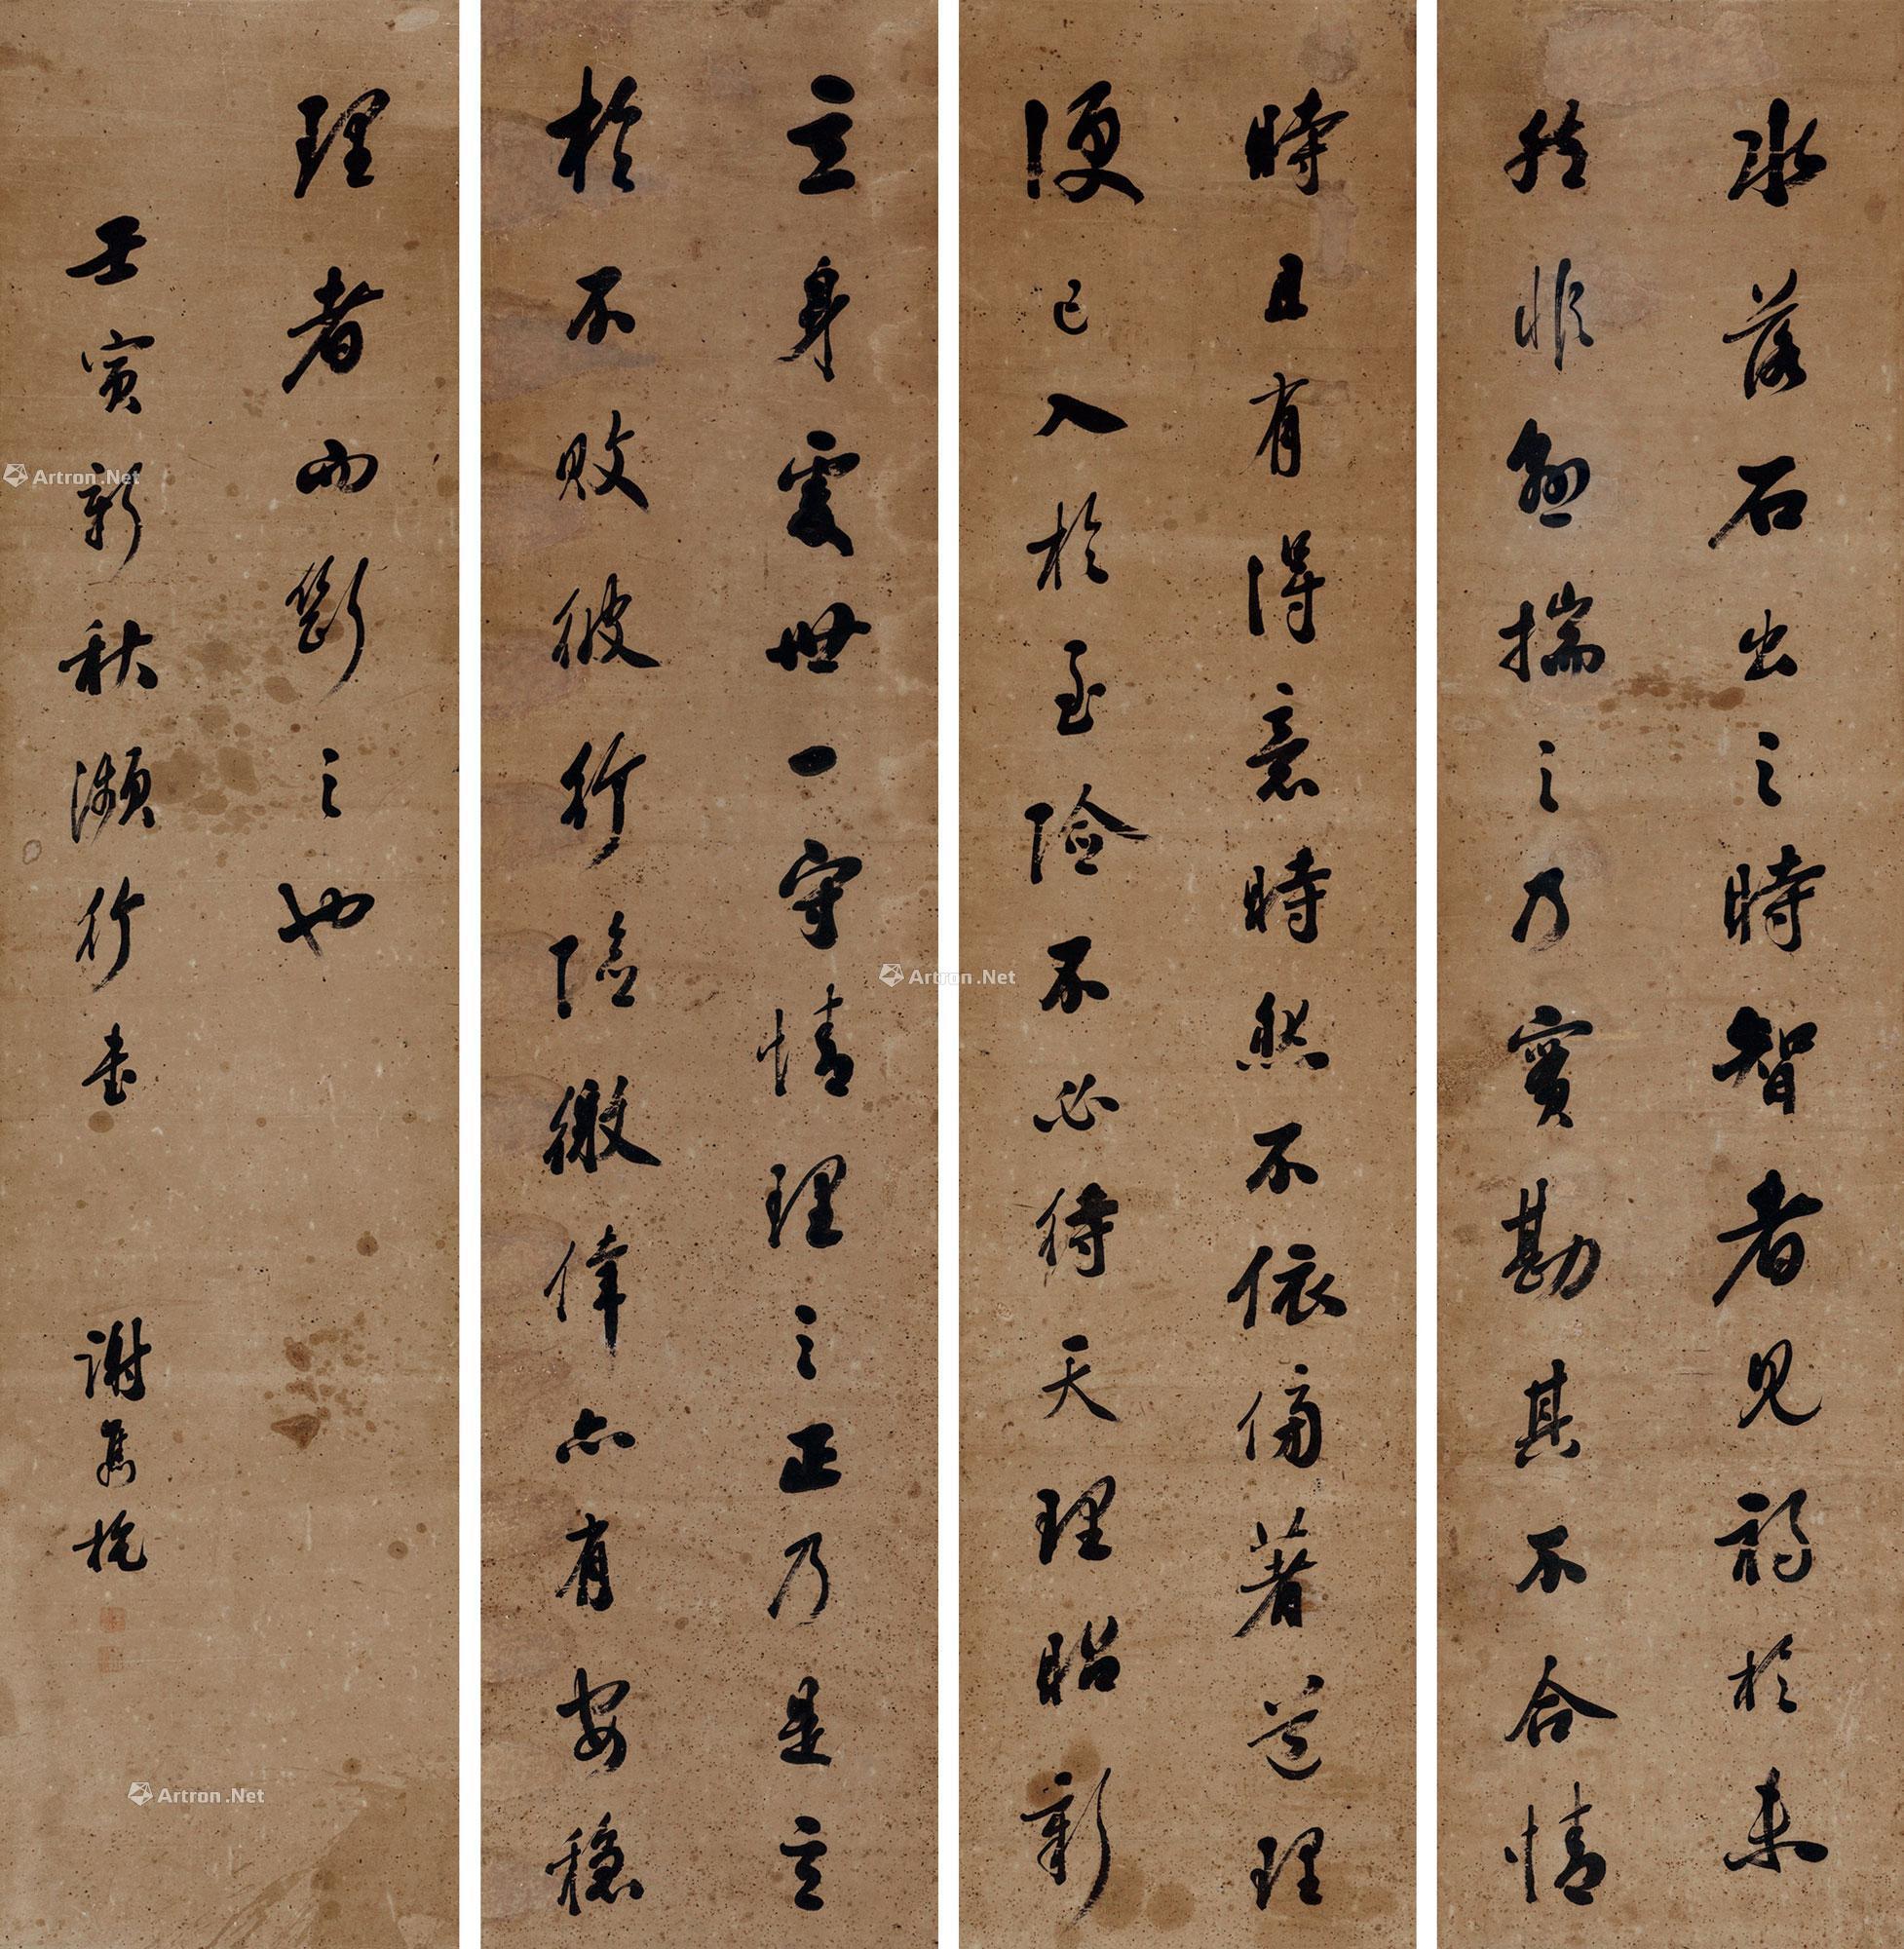 水落石出之時智者見禍於未
然非懸揣之乃實勘其不合情
時且有得意時然不依傍著道理
便已入於至險不必待天理昭彰
立身處世一守情理之正乃是立
於不敗彼行險徼倖亦有安穩
理者而斷之也
壬寅新秋瀕行書 謝雋杭
Artron.Net
Artron.Net
Artron.Net